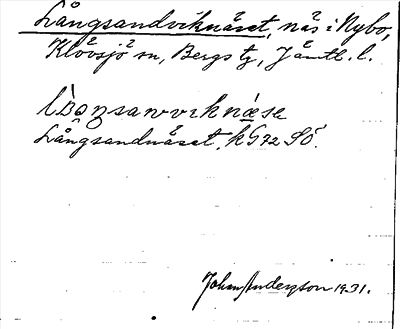 Långsandviknäset, näs i Nybo,
Klövsjö sn, Bergs tg, Jämtl. l.
Långsandnäset, kG72 SÖ.
Johan Anderzson 1931.